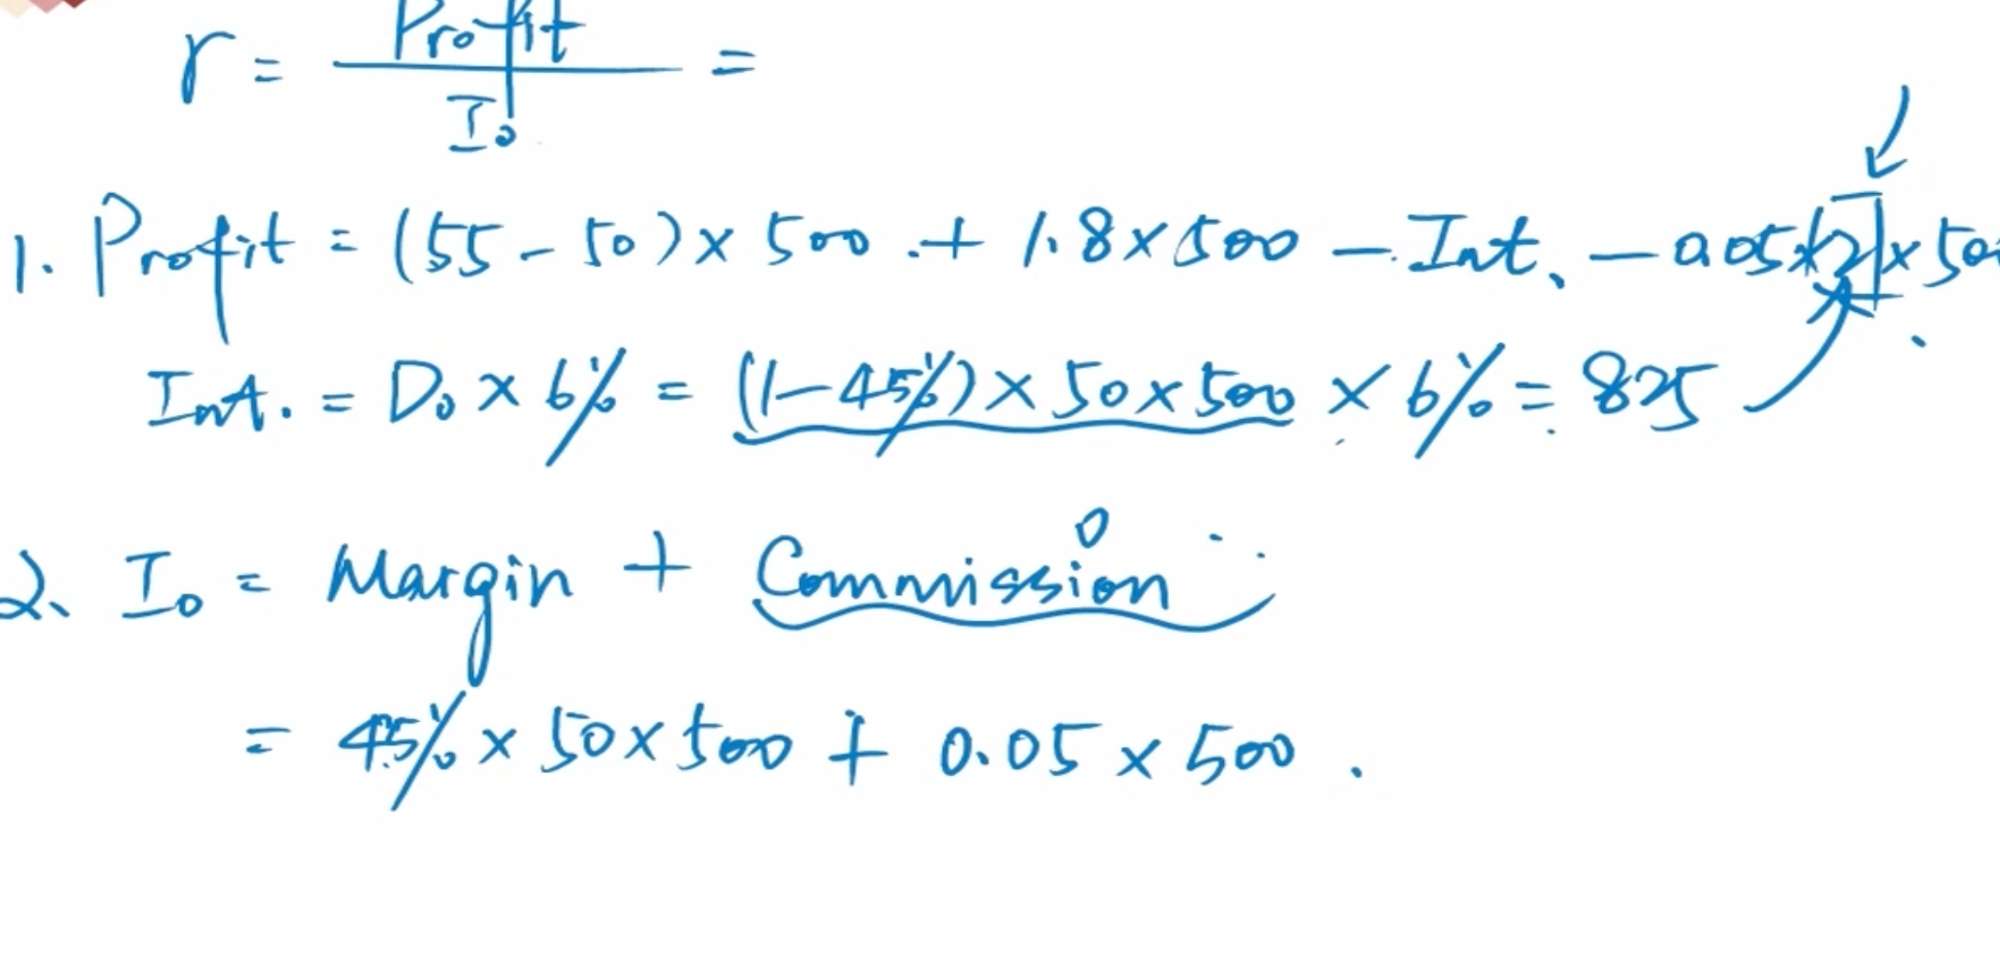 r = Profit / I₀ =
1. Profit = (55 - 50) × 500 + 1.8 × 500 - Int. - 0.05 × 2 × 50
Int. = D₀ × 6% = (1 - 45%) × 50 × 500 × 6% = 825
0
2、 I₀ = Margin + Commission
= 45% × 50 × 500 + 0.05 × 500 .